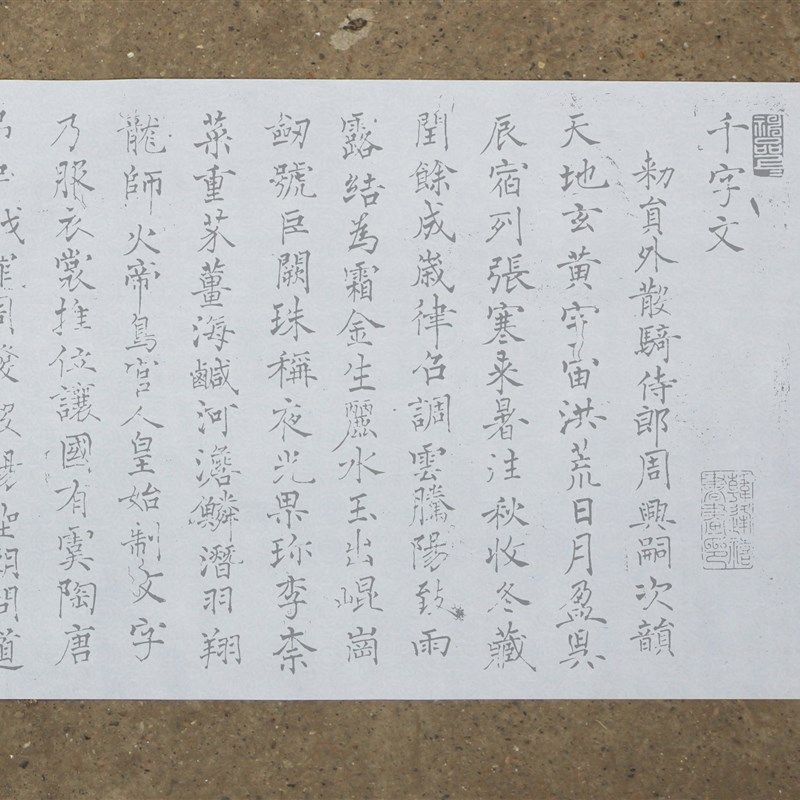 千字文
敕員外散騎侍郎周興嗣次韻
天地玄黃宇宙洪荒日月盈昃
辰宿列張寒来暑往秋收冬藏
閏餘成歲律召調雲騰陽致雨
露結為霜金生麗水玉出崐崗
劒號巨闕珠稱夜光果珎李柰
菜重芥薑海鹹河澹鱗潛羽翔
龍師火帝鳥官人皇始制文字
乃服衣裳推位讓國有虞陶唐